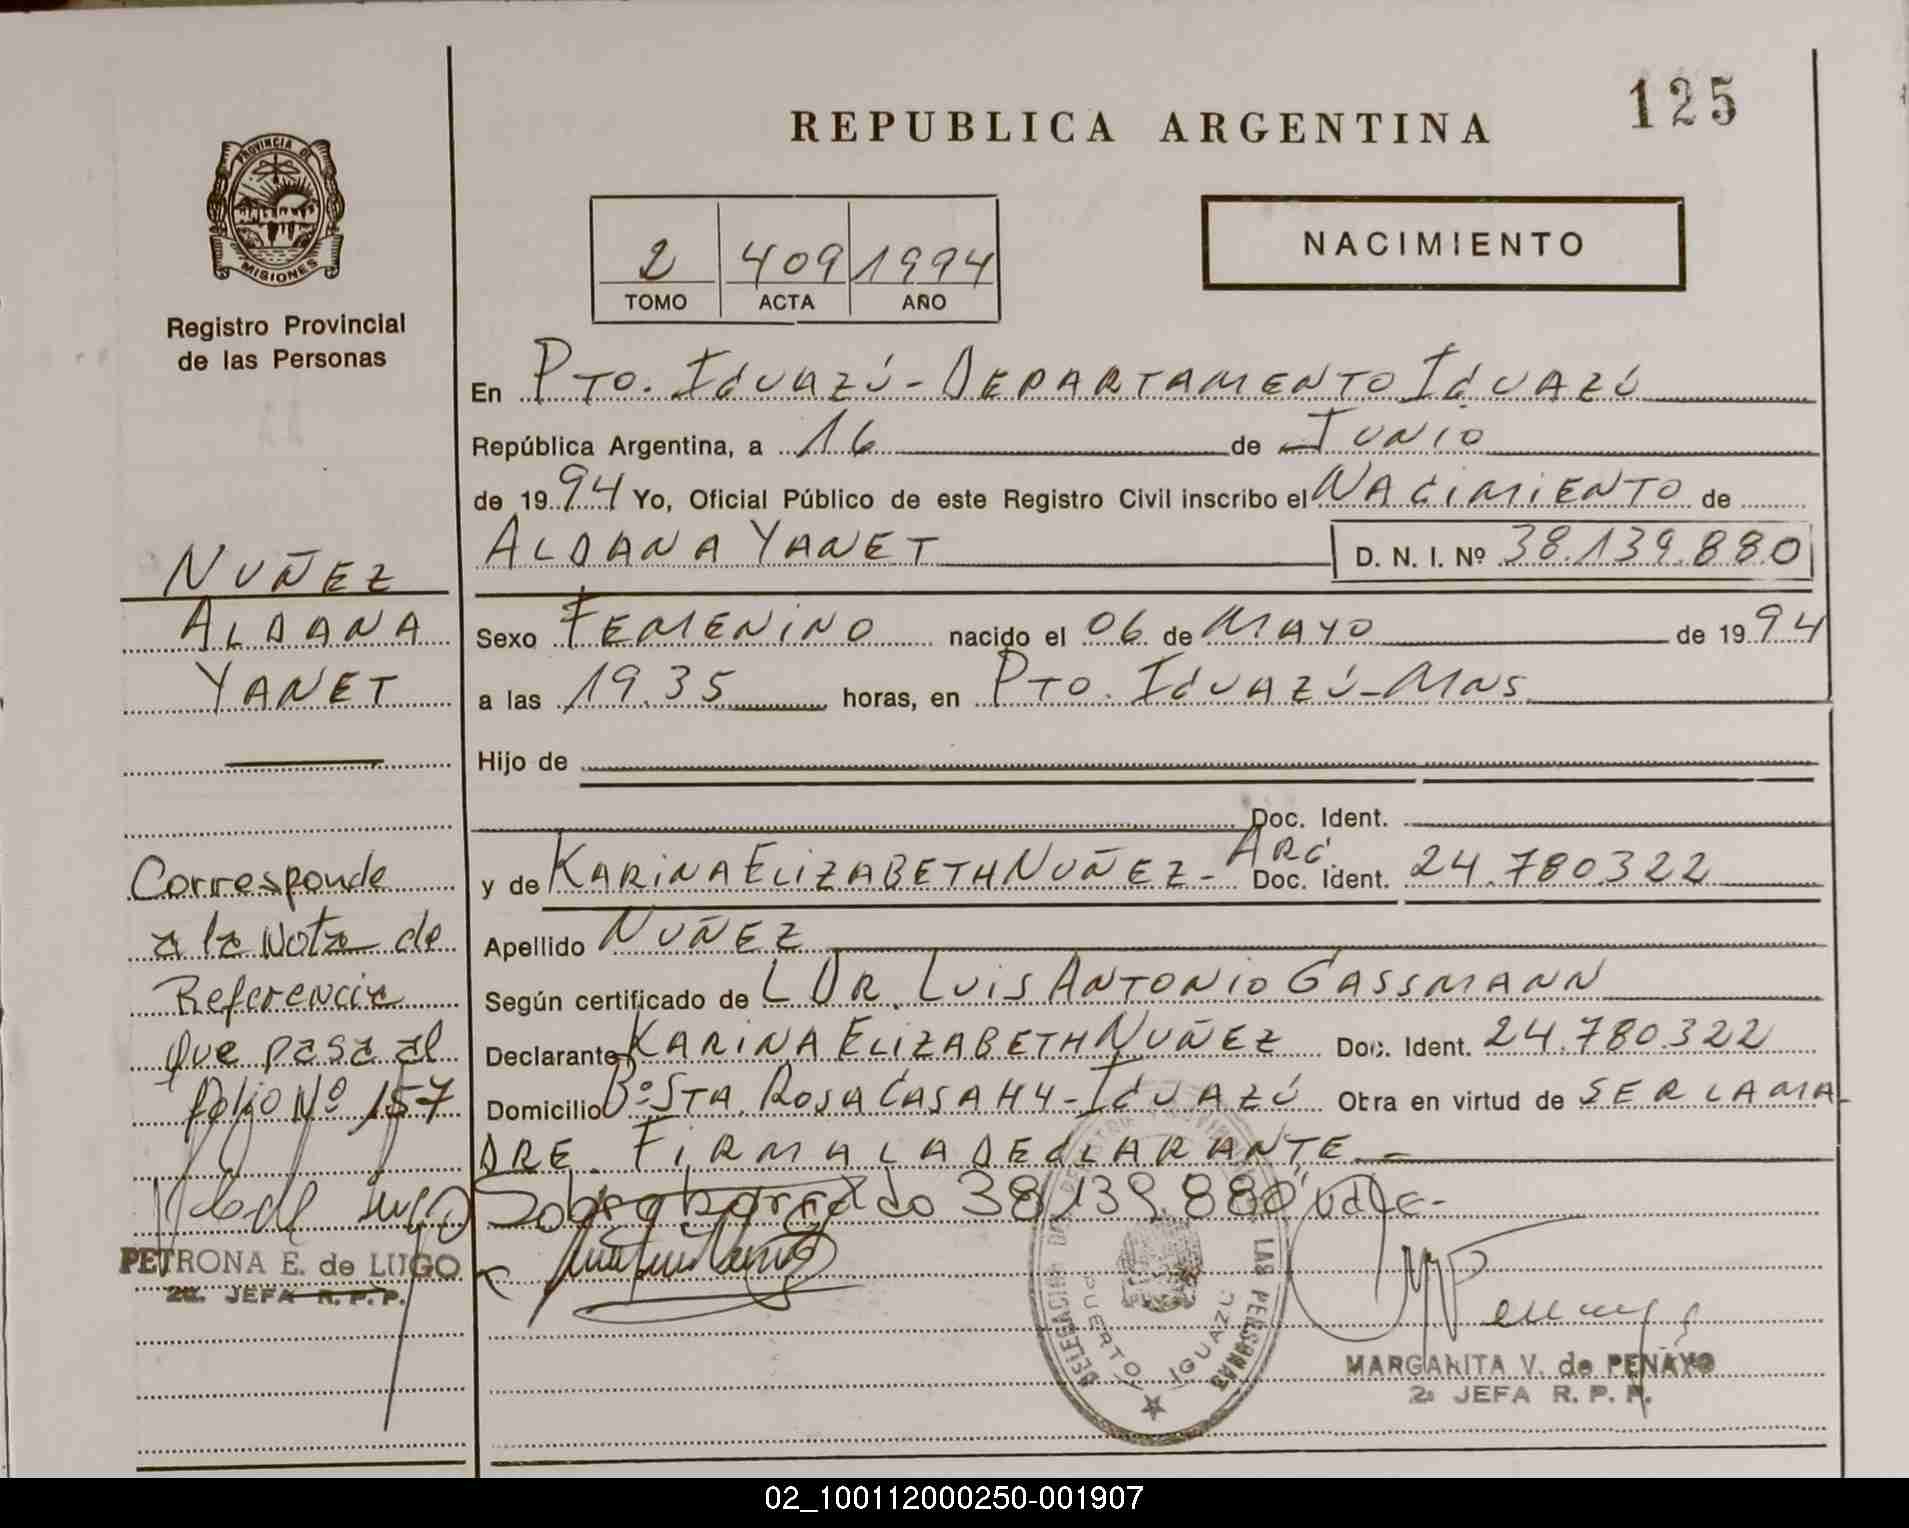 125
REPUBLICA ARGENTINA
PROVINCIA DE
MISIONES
Registro Provincial
de las Personas
2 409 1994
TOMO ACTA AÑO
NACIMIENTO
En PTO. IGUAZÚ - DEPARTAMENTO IGUAZÚ
República Argentina, a 16 de JUNIO
de 1994 Yo, Oficial Público de este Registro Civil inscribo el NACIMIENTO de
ALDANA YANET D. N. I. Nº 38.139.880
Sexo FEMENINO nacido el 06 de MAYO de 1994
a las 19.35 horas, en PTO. IGUAZÚ - MNS
Hijo de
Doc. Ident.
y de KARINA ELIZABETH NUÑEZ - ARG. Doc. Ident. 24.780.322
Apellido NUÑEZ
Según certificado de L DR. LUIS ANTONIO GASSMANN
Declarante KARINA ELIZABETH NUÑEZ Doc. Ident. 24.780.322
Domicilio Bº STA. ROSA CASA H4 - IGUAZÚ Obra en virtud de SER LA MA-
DRE. FIRMA LA DECLARANTE. -
Sobreborrado 38139.880 "vale.-
NUÑEZ
ALDANA
YANET
Corresponde
a la Nota de
Referencia
que pasa al
folio Nº 157
PETRONA E. de LUGO
2a. JEFA R. P. P.
DELEGACION DEL REGISTRO PROVINCIAL DE LAS PERSONAS
PUERTO IGUAZU
MARGARITA V. de PENAYO
2a JEFA R. P. P.
02_100112000250-001907